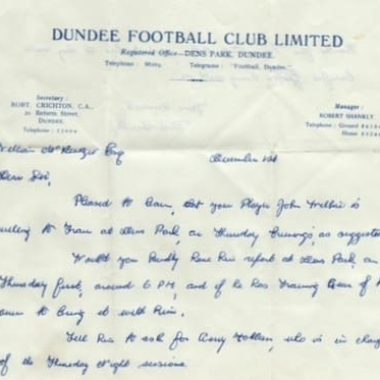 DUNDEE FOOTBALL CLUB LIMITED
Registered Office—DENS PARK, DUNDEE.
Telephone : Telegrams : "Football, Dundee."
Secretary :
ROBT. CRICHTON, C.A.,
Reform Street,
Dundee.
Telephone :
Manager :
ROBERT SHANKLY
Telephone : Ground
Home
Esq December
Dear Sir,
Pleased to learn, that your Player John is
willing to Train at Dens Park, on Thursday Evenings, as suggested
Would you kindly have him report at Dens Park, on
Thursday first, around 6 PM, and if he has Training Gear of
own to bring it with him.
Tell him to ask for who is in charge
of the Thursday Night sessions.